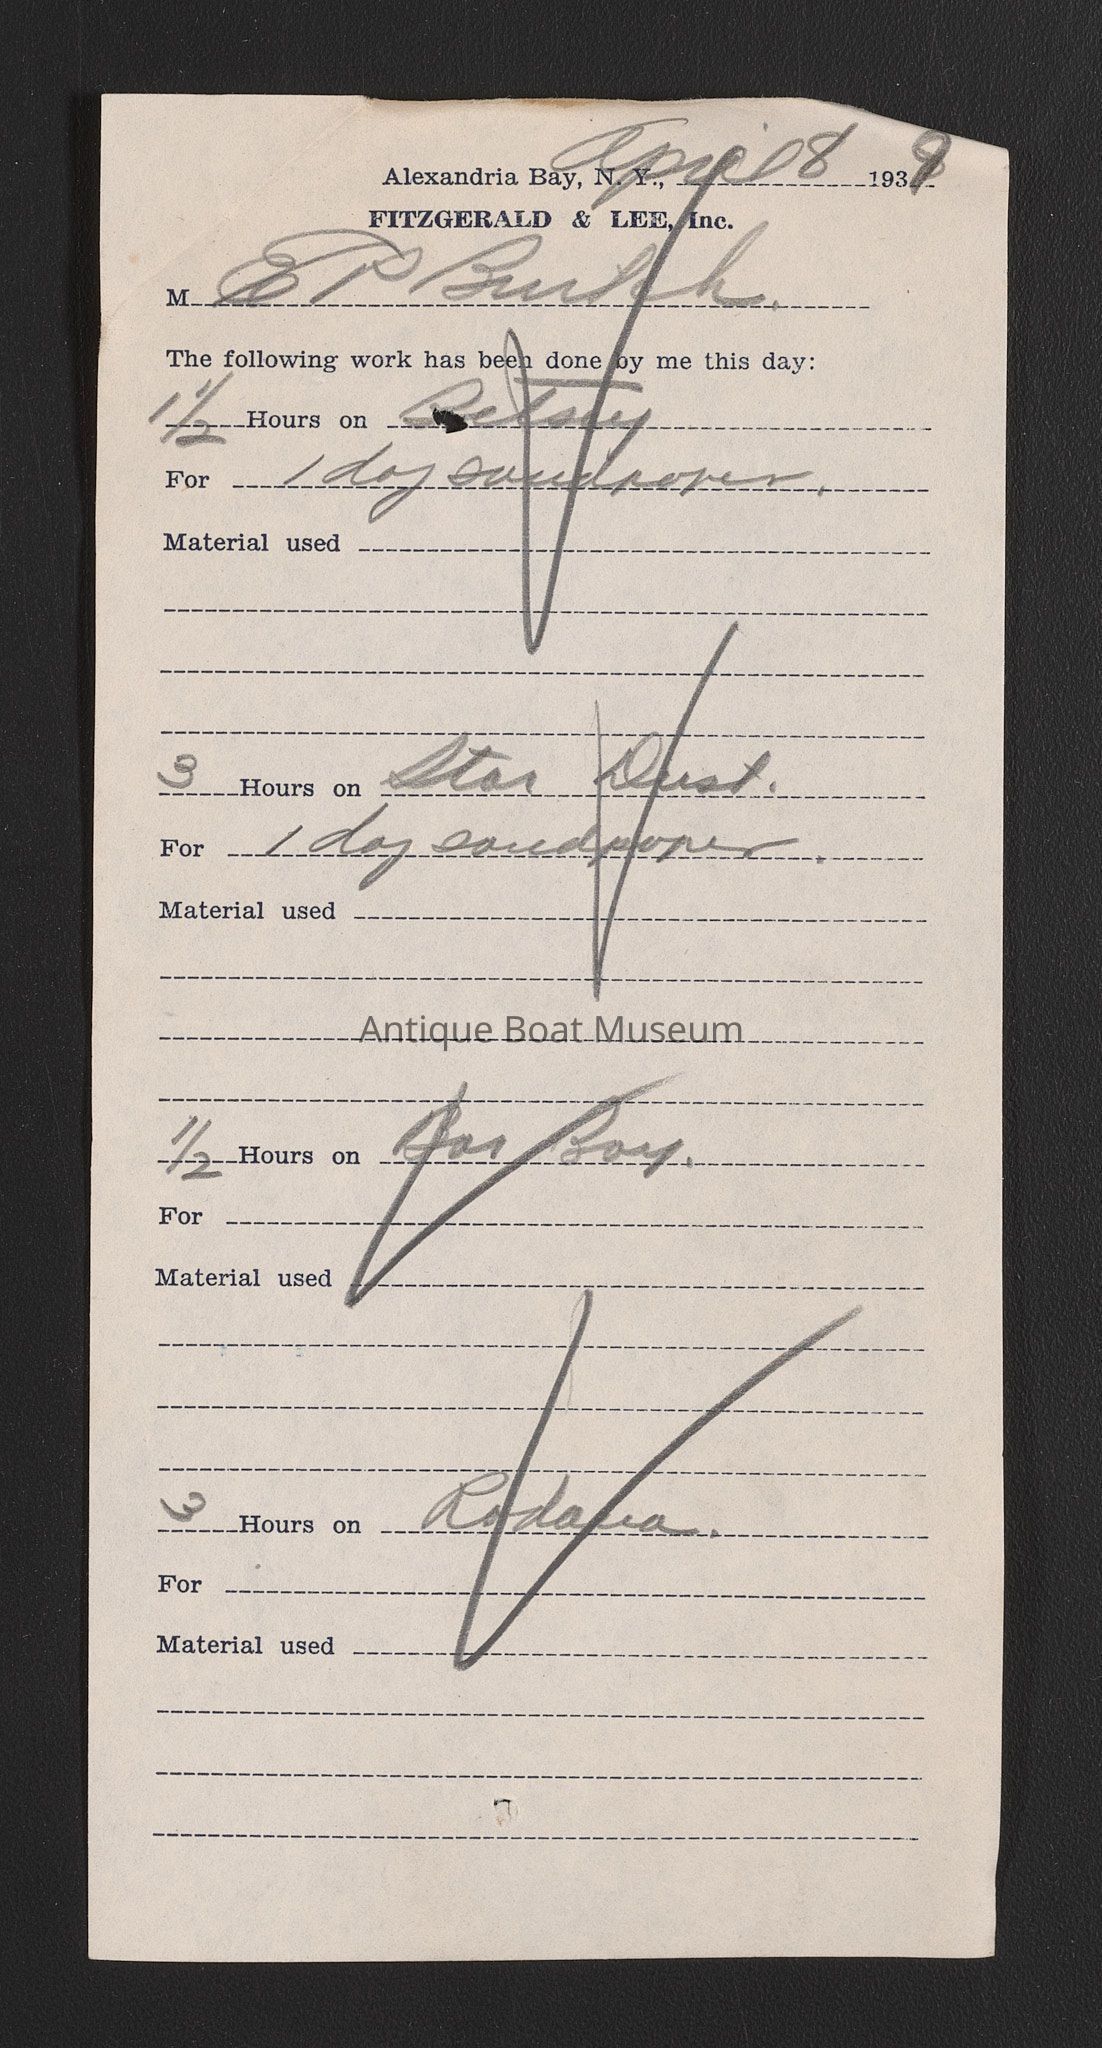 Alexandria Bay, N. Y., April 8 193
FITZGERALD & LEE, Inc.
M E P Burtch.
The following work has been done by me this day:
1 1/2 Hours on Betsy
For 1 day sandpaper.
Material used
3 Hours on Star Dust.
For 1 day sandpaper.
Material used
Antique Boat Museum
1/2 Hours on Boy.
For
Material used
3 Hours on
For
Material used